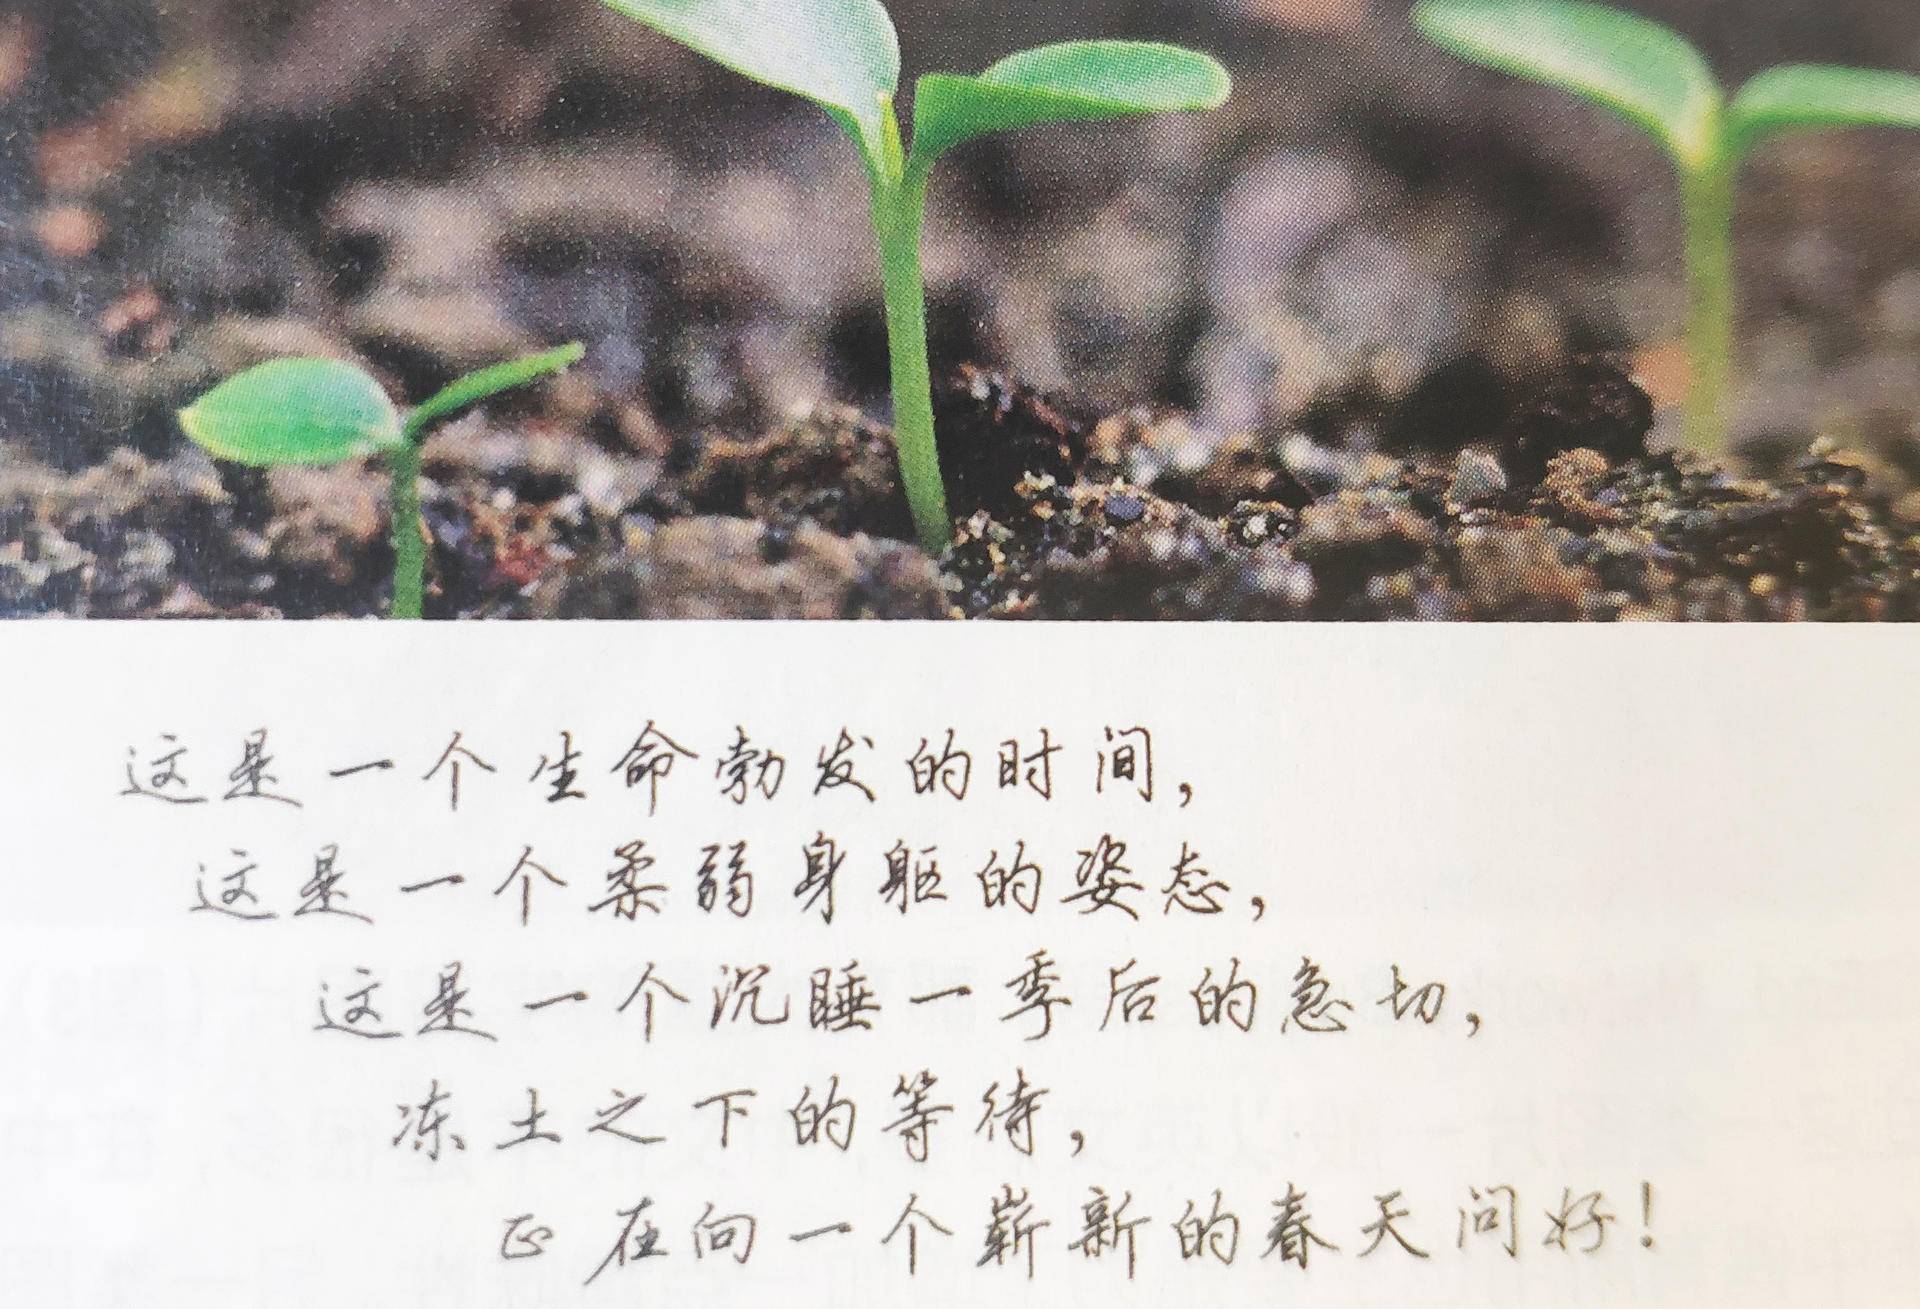 这是一个生命勃发的时间，
这是一个柔弱身躯的姿态，
这是一个沉睡一季后的急切，
冻土之下的等待，
正在向一个崭新的春天问好！